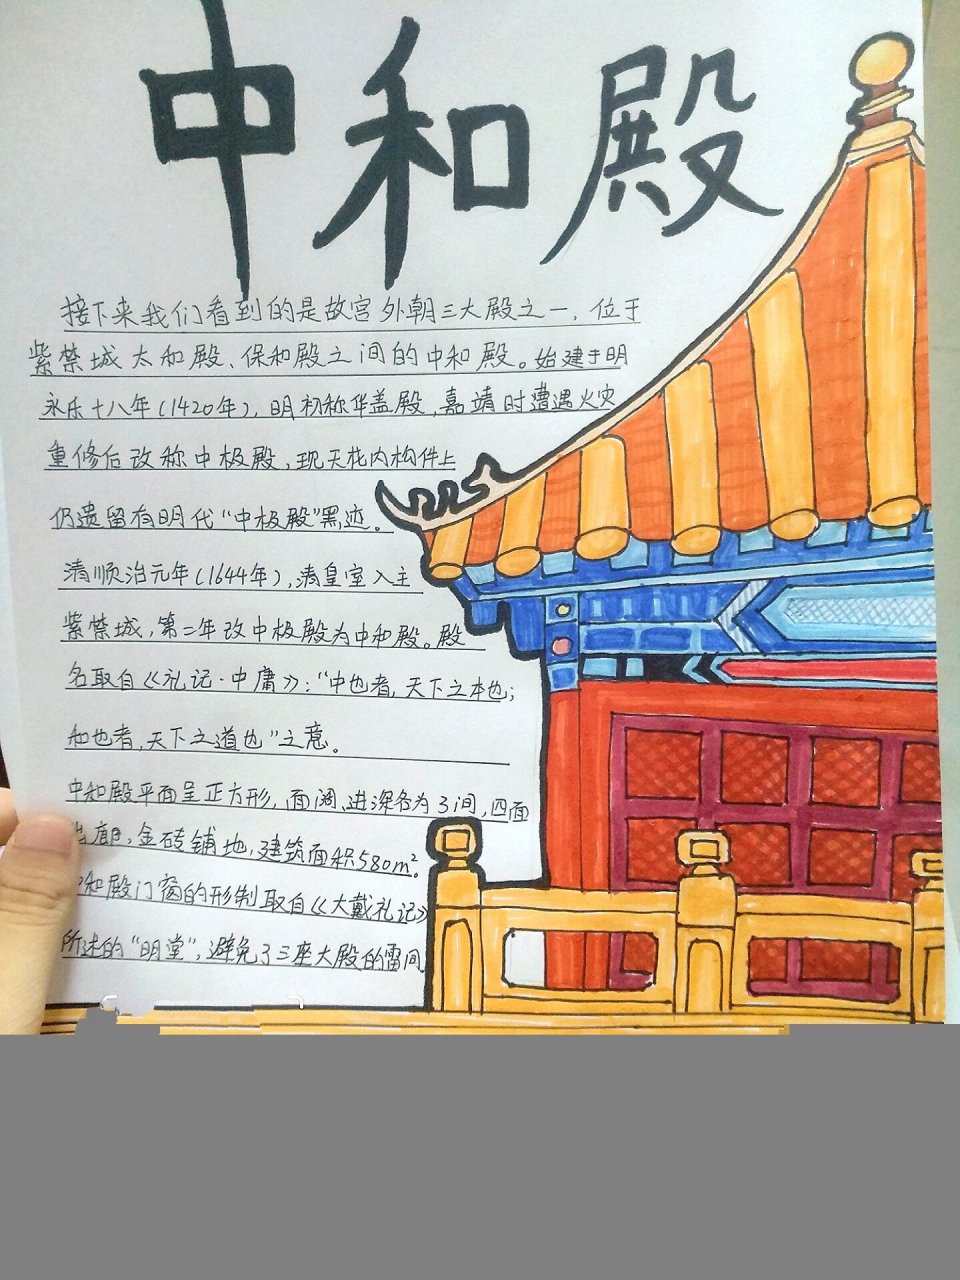 中和殿
接下来我们看到的是故宫外朝三大殿之一，位于
紫禁城太和殿、保和殿之间的中和殿。始建于明
永乐十八年（1420年），明初称华盖殿，嘉靖时遭遇火灾
重修后改称中极殿，现天花内构件上
仍遗留有明代“中极殿”墨迹。
清顺治元年（1644年），清皇室入主
紫禁城，第二年改中极殿为中和殿。殿
名取自《礼记·中庸》：“中也者，天下之本也；
和也者，天下之道也”之意。
中和殿平面呈正方形，面阔、进深各为3间，四面
出廊，金砖铺地，建筑面积580m²。
中和殿门窗的形制取自《大戴礼记》
所述的“明堂”，避免了三座大殿的雷同